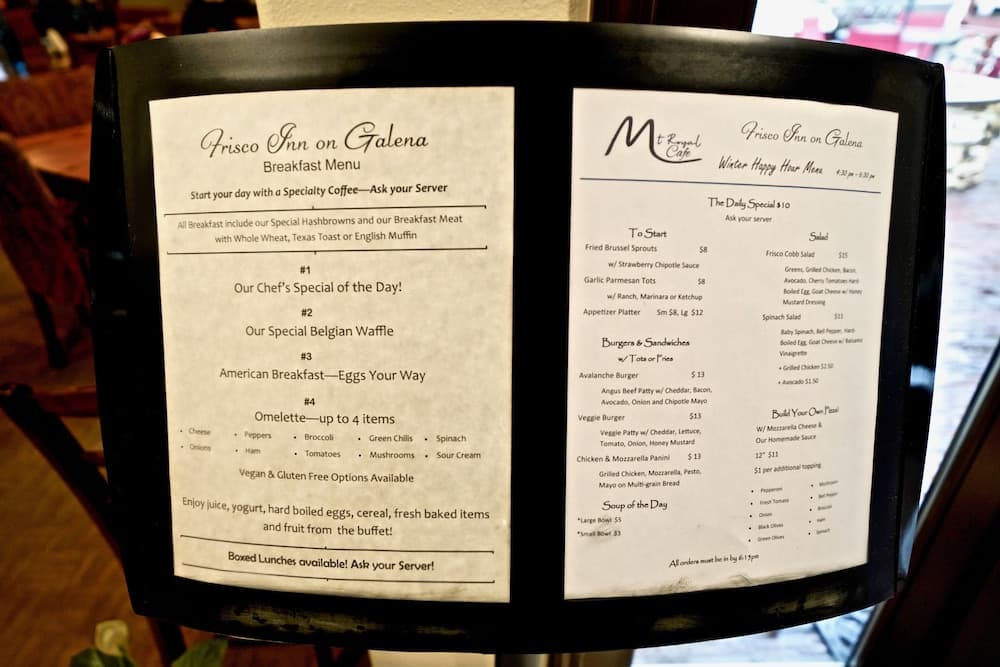 Frisco Inn on Galena
Breakfast Menu
Start your day with a Specialty Coffee—Ask your Server
All Breakfast include our Special Hashbrowns and our Breakfast Meat
with Whole Wheat, Texas Toast or English Muffin
#1
Our Chef's Special of the Day!
#2
Our Special Belgian Waffle
#3
American Breakfast—Eggs Your Way
#4
Omelette—up to 4 items
• Cheese • Peppers • Broccoli • Green Chilis • Spinach
• Onions • Ham • Tomatoes • Mushrooms • Sour Cream
Vegan & Gluten Free Options Available
Enjoy juice, yogurt, hard boiled eggs, cereal, fresh baked items
and fruit from the buffet!
Boxed Lunches available! Ask your Server!
Mt Royal
Cafe
Frisco Inn on Galena
Winter Happy Hour Menu 4:30 pm – 6:30 pm
The Daily Special $10
Ask your server
To Start
Fried Brussel Sprouts $8
w/ Strawberry Chipotle Sauce
Garlic Parmesan Tots $8
w/ Ranch, Marinara or Ketchup
Appetizer Platter Sm $8, Lg $12
Burgers & Sandwiches
w/ Tots or Fries
Avalanche Burger $ 13
Angus Beef Patty w/ Cheddar, Bacon,
Avocado, Onion and Chipotle Mayo
Veggie Burger $13
Veggie Patty w/ Cheddar, Lettuce,
Tomato, Onion, Honey Mustard
Chicken & Mozzarella Panini $ 13
Grilled Chicken, Mozzarella, Pesto,
Mayo on Multi-grain Bread
Soup of the Day
*Large Bowl $5
*Small Bowl $3
Salad
Frisco Cobb Salad $15
Greens, Grilled Chicken, Bacon,
Avocado, Cherry Tomatoes Hard-
Boiled Egg, Goat Cheese w/ Honey
Mustard Dressing
Spinach Salad $11
Baby Spinach, Bell Pepper, Hard-
Boiled Egg, Goat Cheese w/ Balsamic
Vinaigrette
+ Grilled Chicken $2.50
+ Avocado $1.50
Build Your Own Pizza!
W/ Mozzarella Cheese &
Our Homemade Sauce
12" $11
$1 per additional topping
• Pepperoni • Mushroom
• Fresh Tomato • Bell Pepper
• Onion • Broccoli
• Black Olives • Ham
• Green Olives • Spinach
All orders must be in by 6:15pm